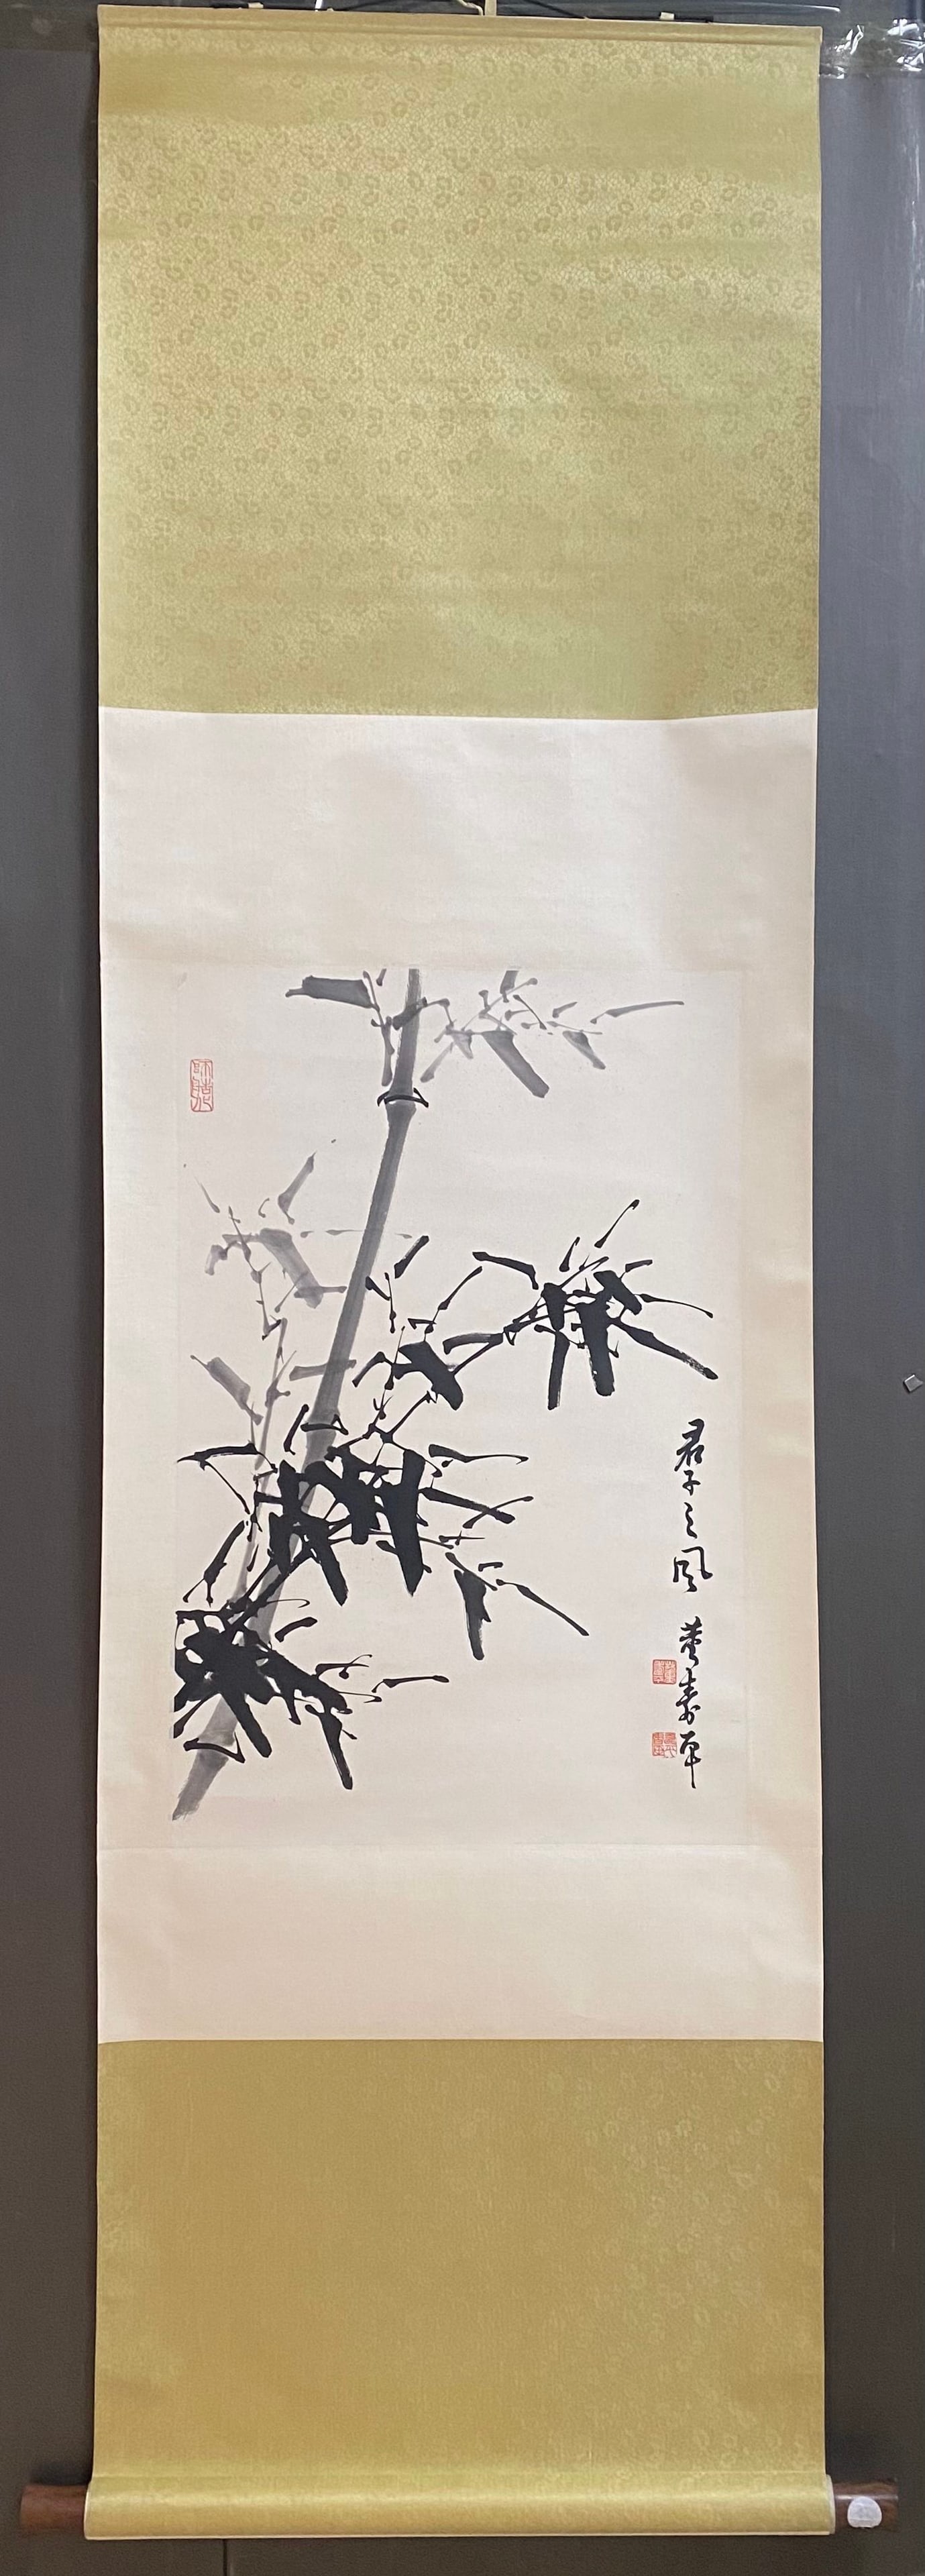 君子之風 董壽平